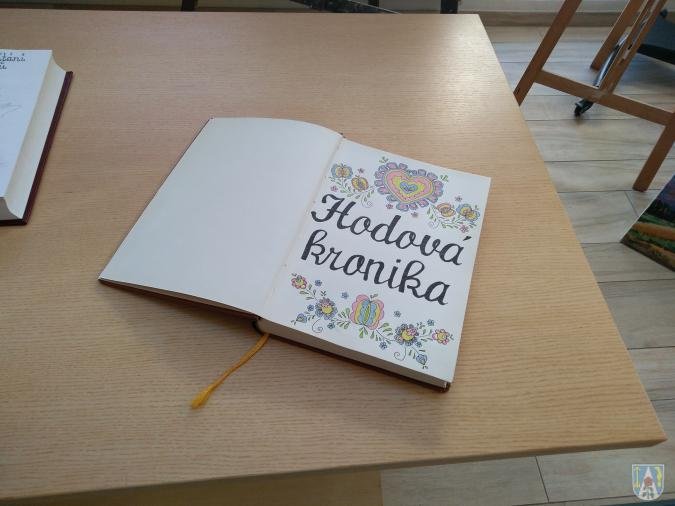 Hodová
kronika